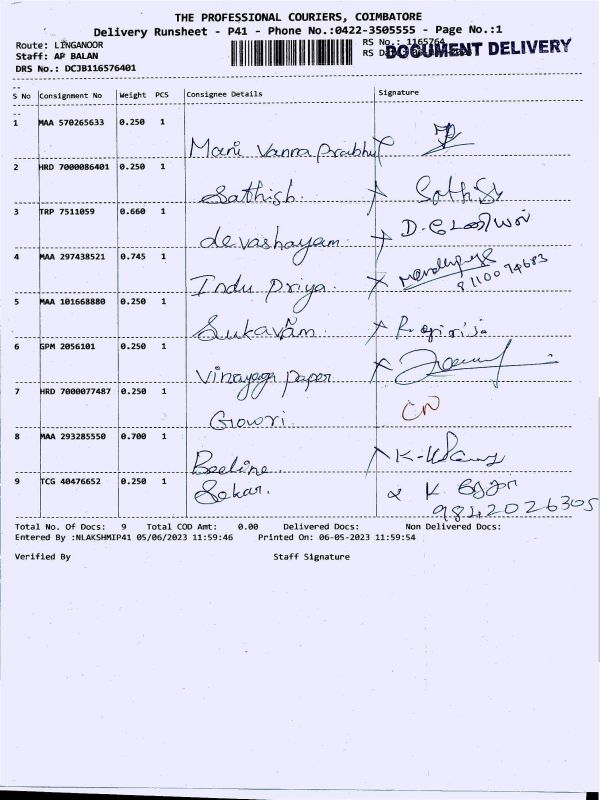 THE PROFESSIONAL COURIERS, COIMBATORE
Delivery Runsheet - P41 - Phone No.:0422-3505555 - Page No.:1
Route: LINGANOOR
RS No.: 1165764
Staff: AP BALAN
RS D
DOCUMENT DELIVERY
DRS No.: DCJB116576401
S No Consignment No Weight PCS Consignee Details Signature
1 MAA 570265633 0.250 1
Mani Vanna Prabhu
2 HRD 7000086401 0.250 1
Sathish.
3 TRP 7511059 0.660 1
devashayam
4 MAA 297438521 0.745 1
Indu Priya
5 MAA 101668880 0.250 1
Sukavam
6 GPM 2056101 0.250 1
Vinayaga paper
7 HRD 7000077487 0.250 1 CN
Gowri
8 MAA 293285550 0.700 1
Beeline
9 TCG 40476652 0.250 1
Sekar.
9842026305
Total No. Of Docs: 9 Total COD Amt: 0.00 Delivered Docs: Non Delivered Docs:
Entered By :NLAKSHMIP41 05/06/2023 11:59:46 Printed On: 06-05-2023 11:59:54
Verified By Staff Signature